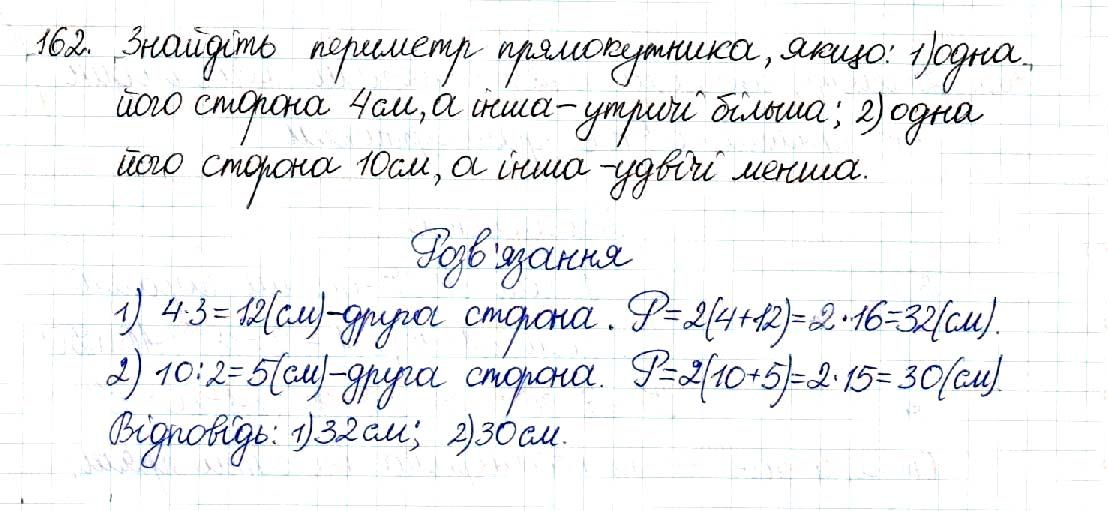 162. Знайдіть периметр прямокутника, якщо: 1) одна
його сторона 4см, а інша - утричі більша; 2) одна
його сторона 10см, а інша - удвічі менша.
Розв'язання
1) 4·3=12(см)-друга сторона. P=2(4+12)=2·16=32(см).
2) 10:2=5(см)-друга сторона. P=2(10+5)=2·15=30(см).
Відповідь: 1)32см; 2)30см.